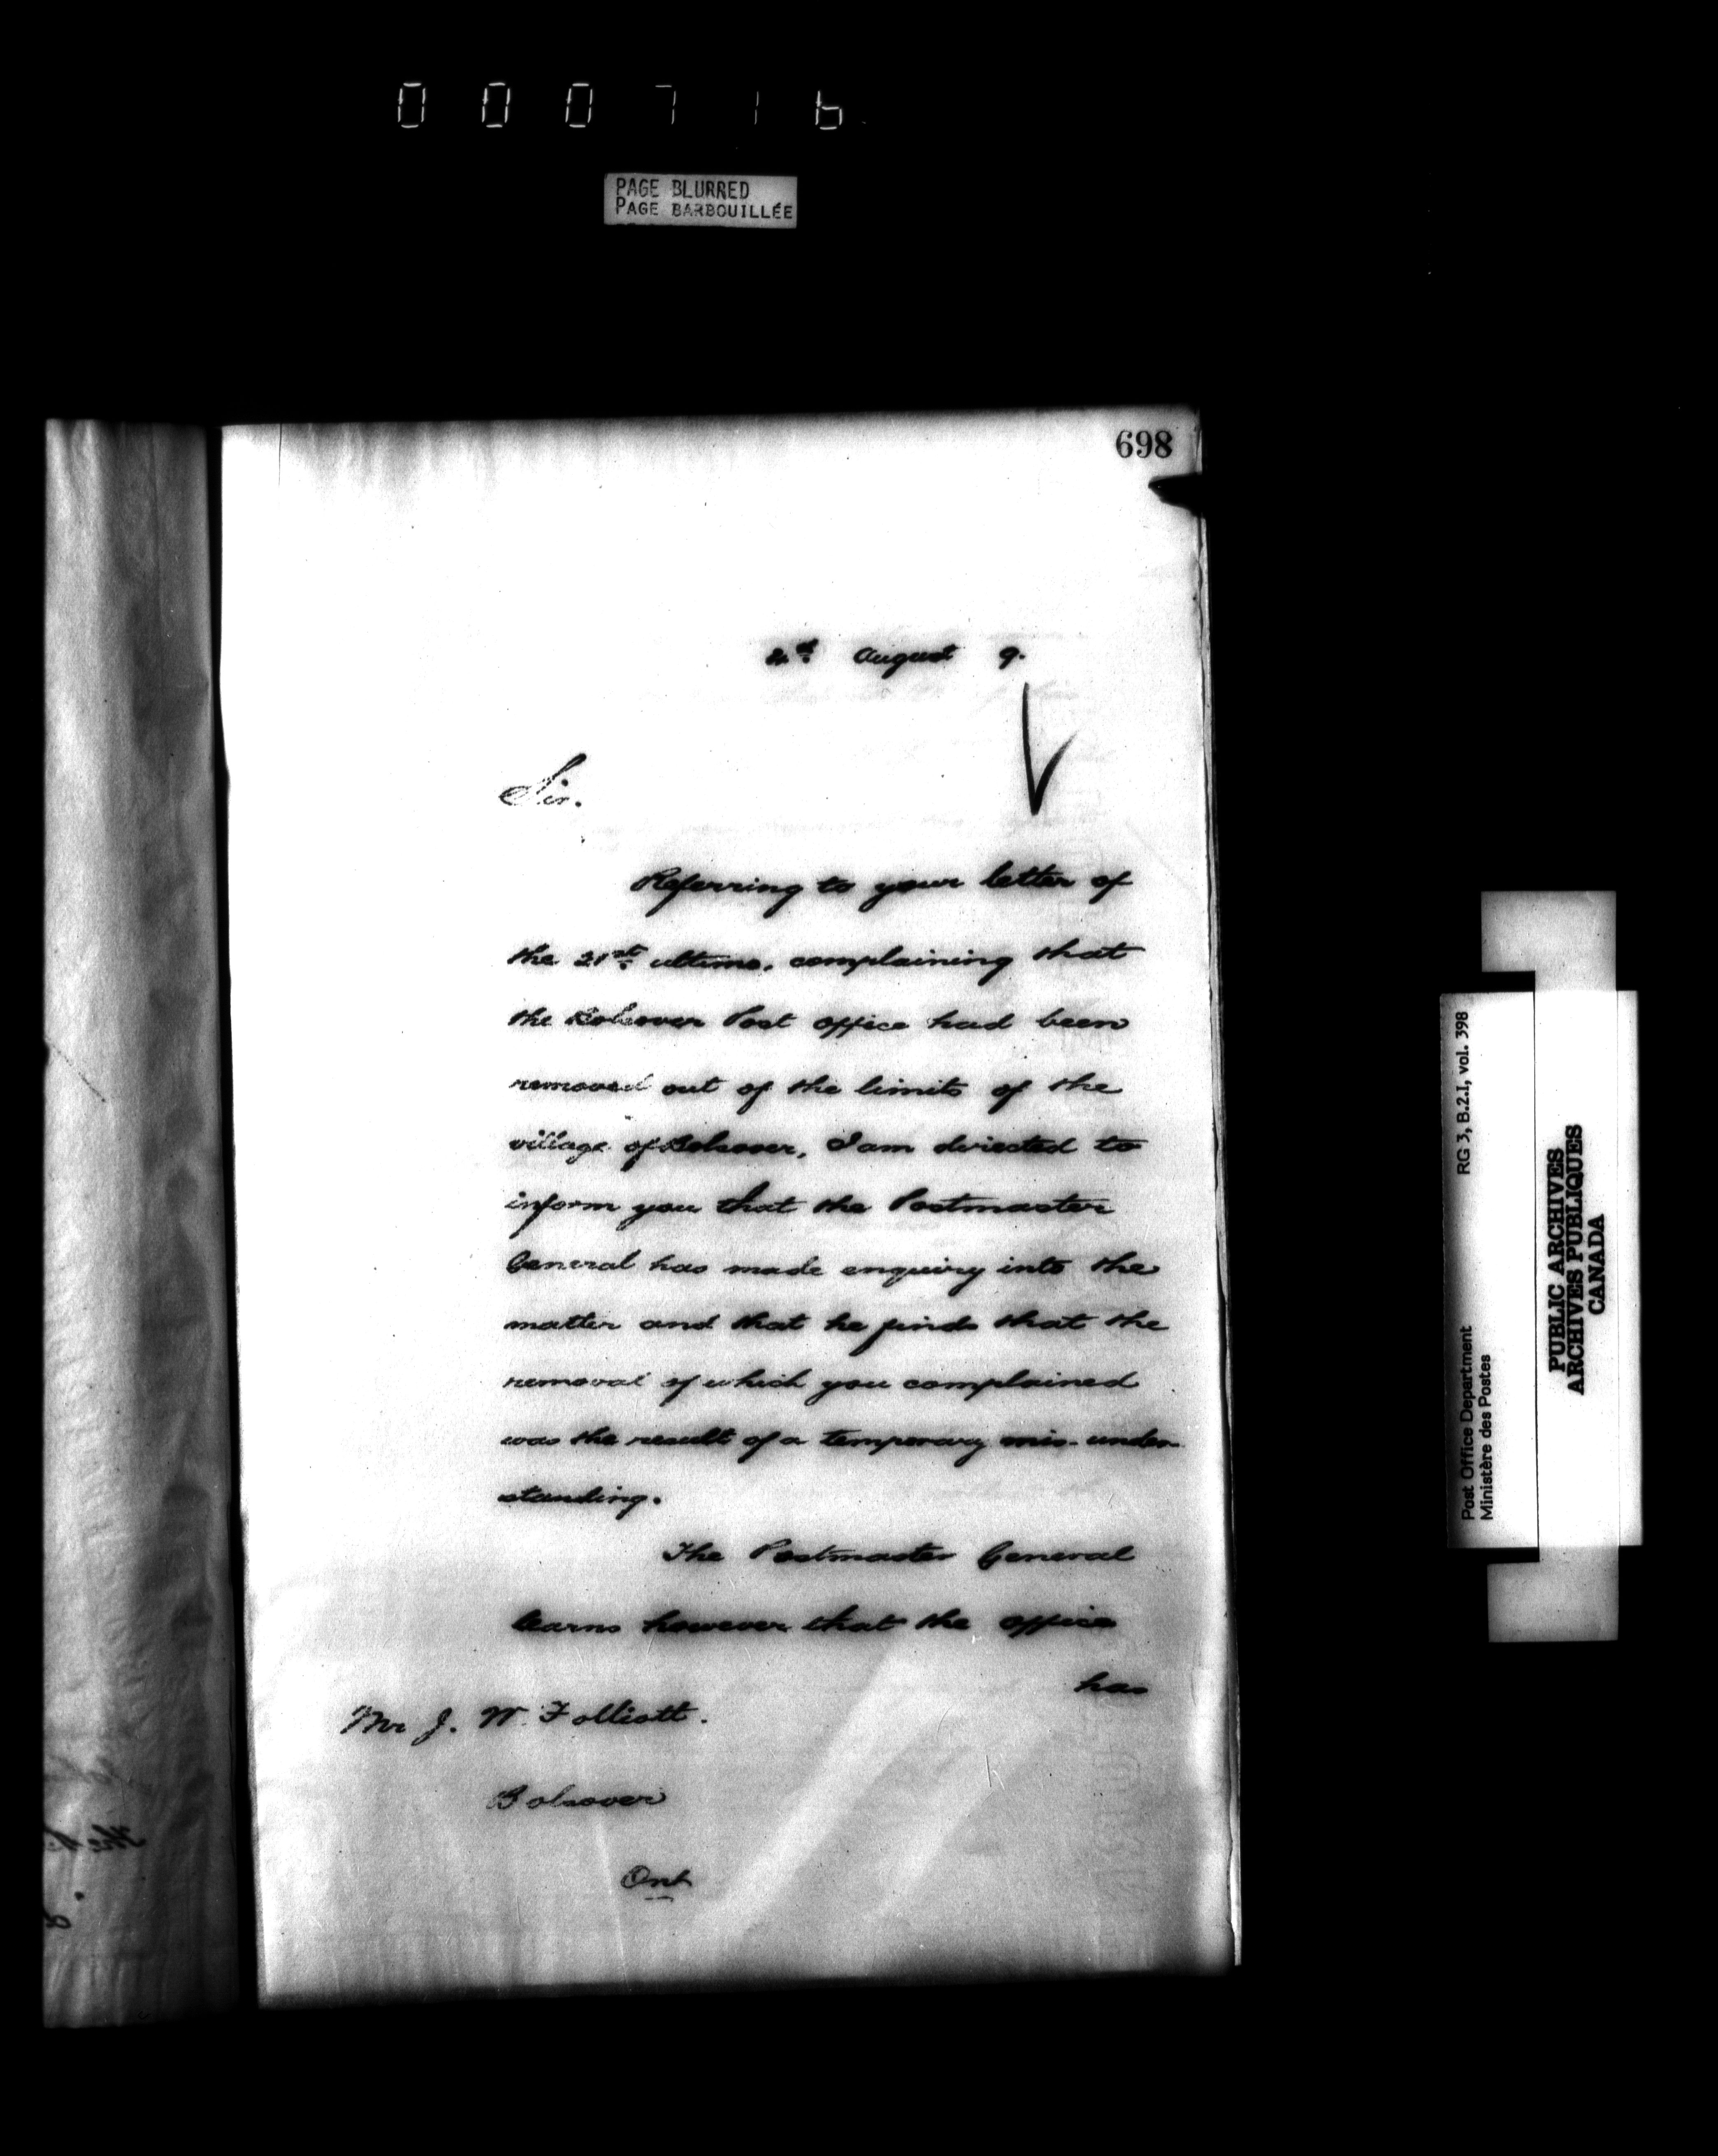 000716
PAGE BLURRED
PAGE BARBOUILLÉE
698
August 9.
Sir.
Referring to your letter of
the 21st ultimo, complaining that
the Bolsover Post office had been
removed out of the limits of the
village of Bolsover, I am directed to
inform you that the Postmaster
General has made enquiry into the
matter and that he finds that the
removal of which you complained
was the result of a temporary mis-under-
standing.
The Postmaster General
learns however that the office
has
Mr J. W. Folliott.
Bolsover
Ont
Post Office Department
Ministère des Postes
RG 3, B.2.I, vol. 398
PUBLIC ARCHIVES
ARCHIVES PUBLIQUES
CANADA